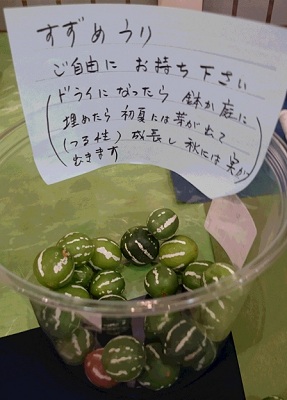 すずめうり
ご自由に お持ち下さい
(ドライになったら 鉢か庭に
埋めたら 初夏には芽が出て
(つる性) 成長し 秋には実が
むきます